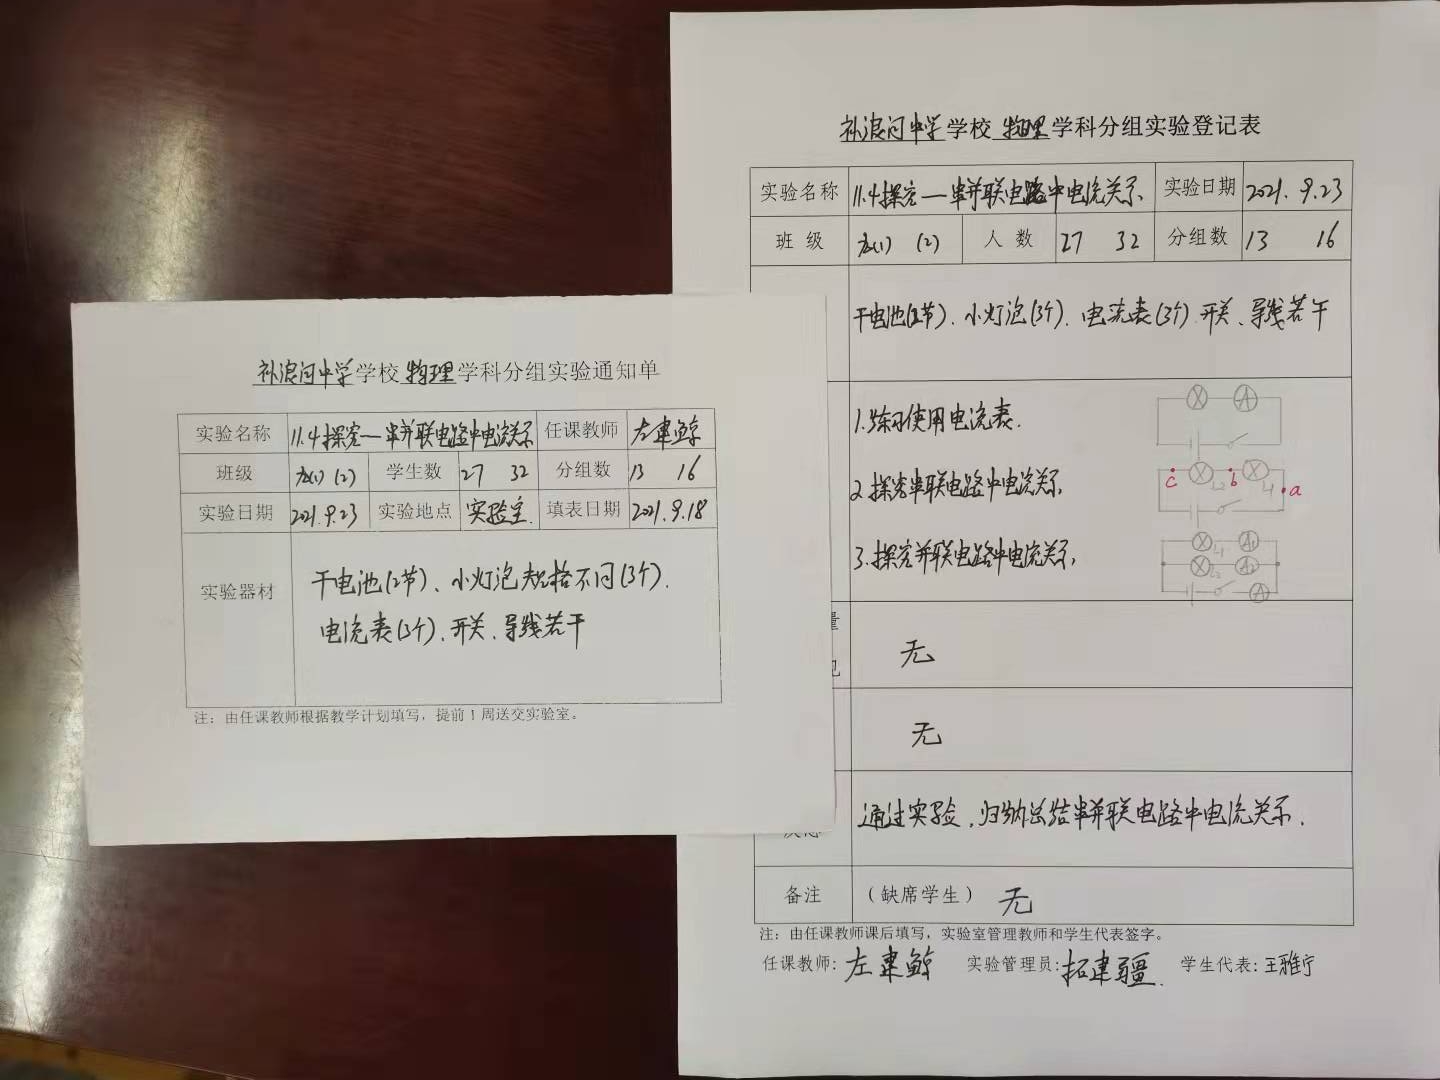 补浪河中学学校 物理 学科分组实验通知单
实验名称 11.4探究一串并联电路中电流关系 任课教师 左建鲸
班级 九(1) (2) 学生数 27 32 分组数 13 16
实验日期 2021.9.23 实验地点 实验室 填表日期 2021.9.18
实验器材
干电池(2节)、小灯泡规格不同(3个).
电流表(3个)、开关、导线若干
注：由任课教师根据教学计划填写，提前1周送交实验室。
补浪河中学学校 物理 学科分组实验登记表
实验名称 11.4探究一串并联电路中电流关系 实验日期 2021.9.23
班级 九(1) (2) 人数 27 32 分组数 13 16
干电池(2节)、小灯泡(3个)、电流表(3个)开关、导线若干
1.练习使用电流表.
A
2.探究串联电路中电流关系
c L2 b L1 a
3.探究并联电路中电流关系,
L1 A1
L2 A2
A
量
见
无
无
通过实验,归纳总结串并联电路中电流关系.
备注 （缺席学生） 无
注：由任课教师课后填写，实验室管理教师和学生代表签字。
任课教师：左建鲸 实验管理员：拓建疆. 学生代表：王雅宁